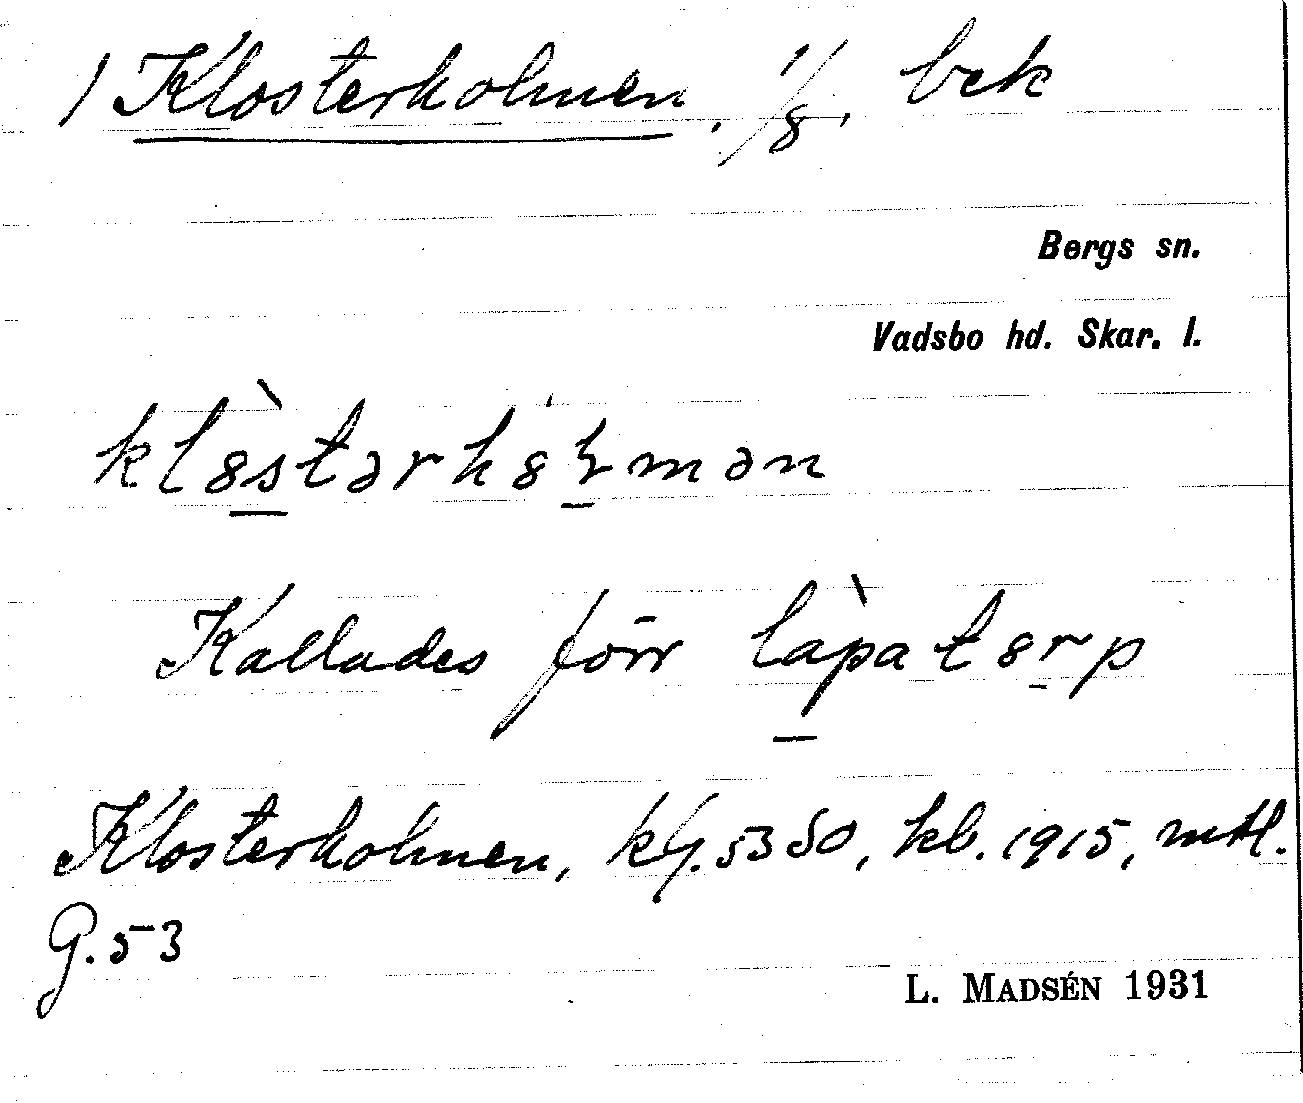 1 Klosterholmen, 1/8, bek
Bergs sn.
Vadsbo hd. Skar. l.
kl8̀stərh8ɽmən
Kallades förr làpat8rp
Klosterholmen, kg. 53 SO, kb. 1915, mtl.
G. 53
L. MADSÉN 1931